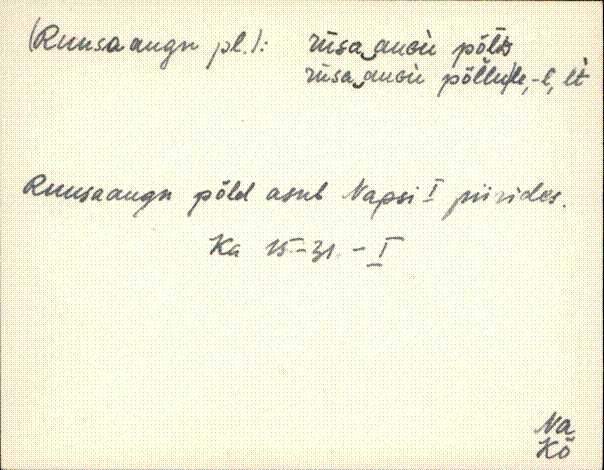 (Ruusaaugu pl.): rūsa‿auGù põlD
rūsa‿auGù põllule, -l, lt
Ruusaaugu põld asub Napsi I piirides.
Ka 15-31. - I
Na
Kõ